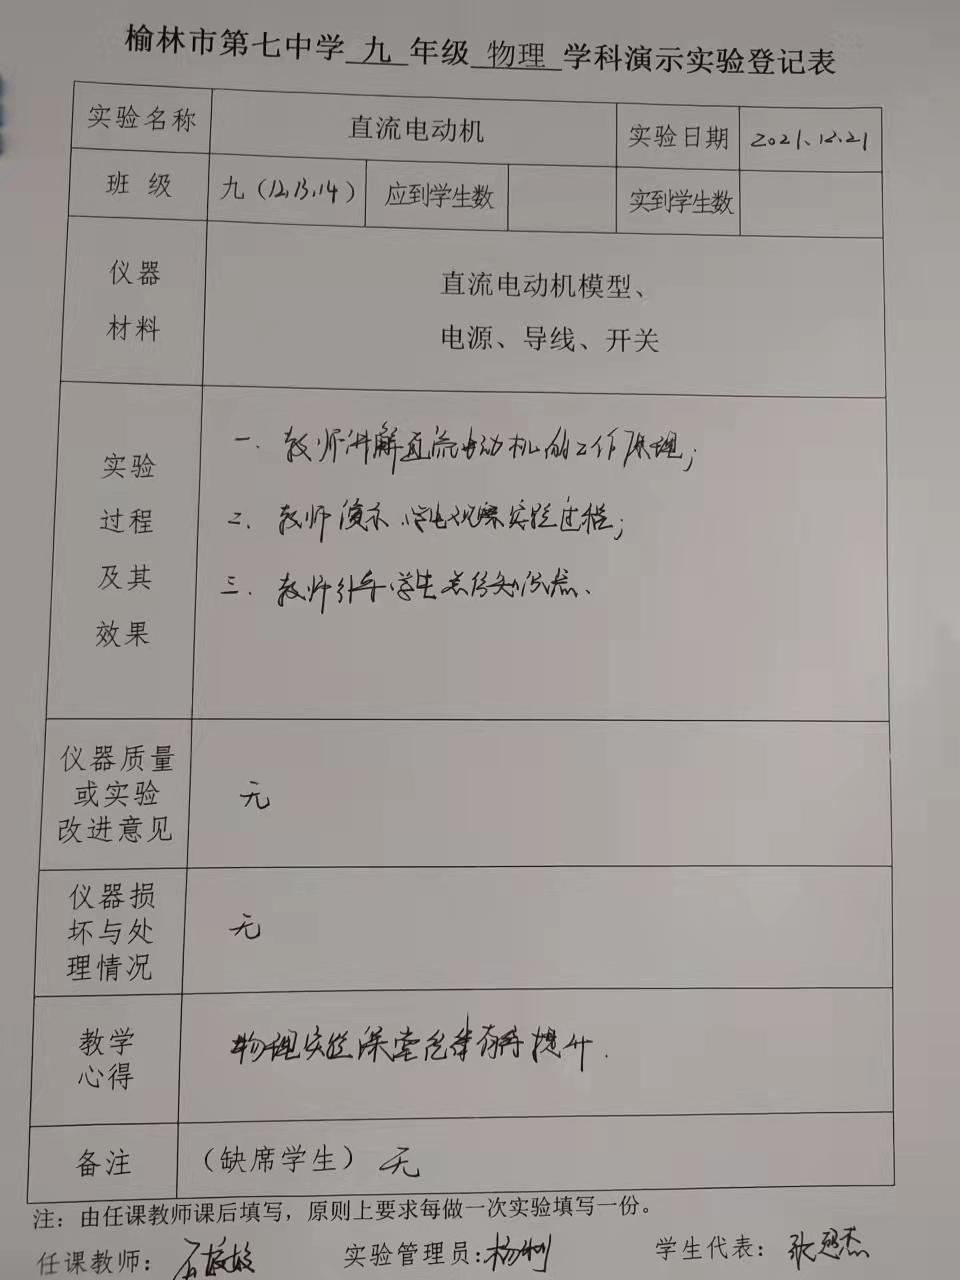 榆林市第七中学 九 年级 物理 学科演示实验登记表
实验名称 直流电动机 实验日期 2021、12.21
班 级 九（12,13,14） 应到学生数 实到学生数
仪器
材料
直流电动机模型、
电源、导线、开关
实验
过程
及其
效果
一. 教师讲解直流电动机的工作原理;
二. 教师演示 学生观察实验过程;
三. 教师引导学生总结知识点、
仪器质量
或实验
改进意见
无
仪器损
坏与处
理情况
无
教学
心得
物理实验课堂效率有待提升.
备注 （缺席学生）无
注：由任课教师课后填写，原则上要求每做一次实验填写一份。
任课教师： 实验管理员:杨 学生代表：张